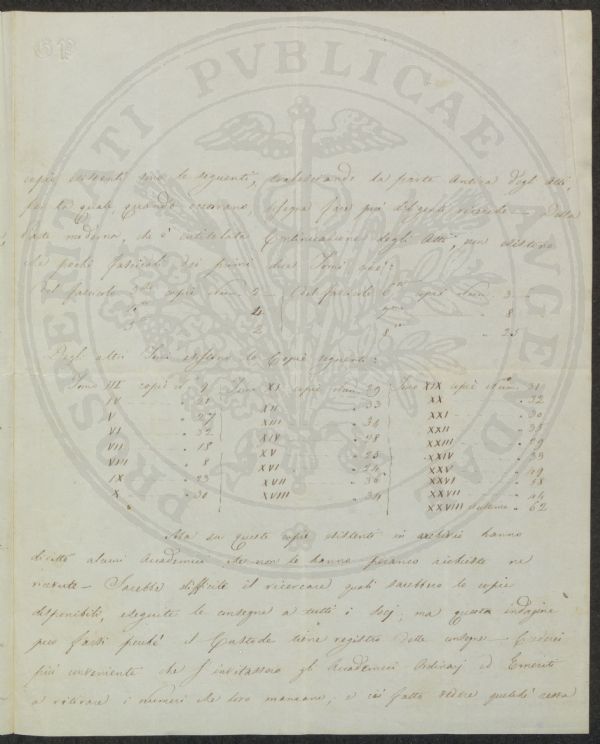 PROSPERITATI PVBLICAE AVGENDAE
copie esistenti sono le seguenti, tralasciando la parte Antica degli Atti,
per la quale quando occorrano, bisogna fare più diligenti ricerche — Della
Parte moderna, che è intitolata Continuazione degli Atti, non esistono
che pochi fascicoli dei primi due Tomi cioè:
Del fascicolo 3° copie num. 2 — Del fascicolo 6° copie num. 3 —
4 8
5 2 8 25
Degli altri Tomi esistono le Copie seguenti:
Tomo III copie n. 9 Tomo XI copie num. 29 Tomo XIX copie num. 31
IV 21 XII 33 XX 32
V 27 XIII 34 XXI 30
VI 32 XIV 28 XXII 33
VII 18 XV 25 XXIII 29
VIII 8 XVI 24 XXIV 33
IX 23 XVII 36 XXV 49
X 30 XVIII 34 XXVI 48
XXVII 44
XXVIII 62
Ma su queste copie esistenti in archivio hanno
diritto alcuni Accademici che non le hanno peranco richieste ne
ricevute — Sarebbe difficile il ricercare quali sarebbero le copie
disponibili, eseguite le consegne a tutti i Socj; ma questa indagine
può farsi perché il Custode tiene registro delle consegne — Crederei
più conveniente che s'invitassero gli Accademici Ordinarj ed Emeriti
a ritirare i numeri che loro mancano, e ciò fatto vedere quelche cosa